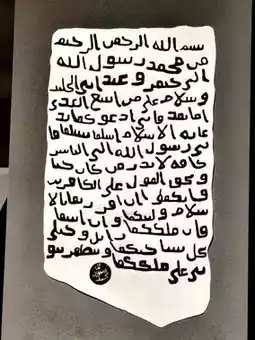 بسم الله الرحمن الرحيم
من محمد رسول الله
الى جيفر وعبد ابني الجلند
وسلام على من اتبع الهدى
اما بعد فاني ادعوكما بد
عايه الاسلام اسلما تسلما فا
ني رسول الله الى الناس
كافه لانذر من كان حيا
ويحق القول على الكافرين
فانكما ان اقررتما بالا
سلام وليتكما وان ابيتما
فان ملككما زايل وخيلي
تحل بساحتكما وتظهر نبو
تي على ملككما